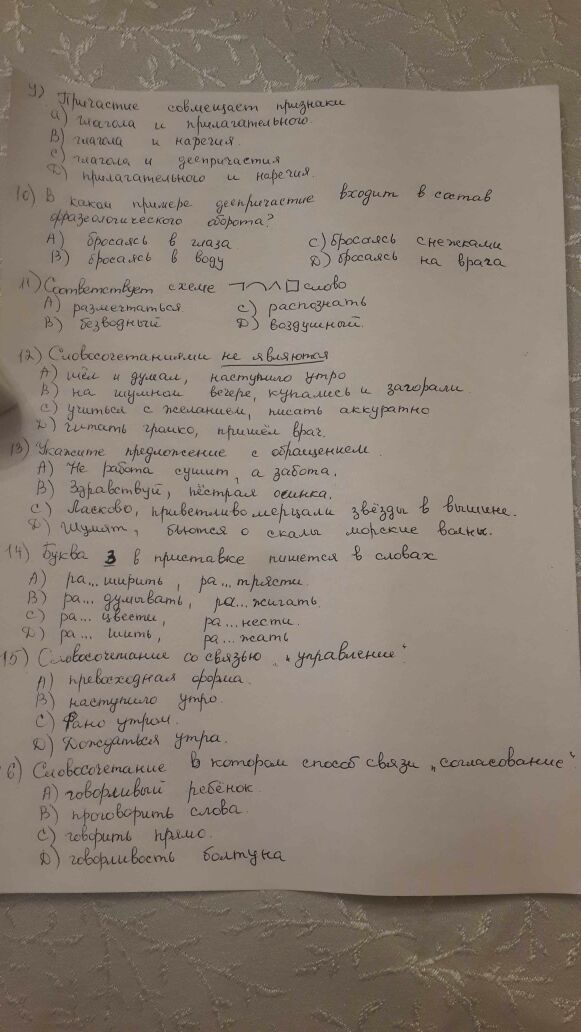 9) Причастие совмещает признаки
а) глагола и прилагательного.
В) глагола и наречия.
С) глагола и деепричастия
D) прилагательного и наречия.
10) В каком примере деепричастие входит в состав
фразеологического оборота?
А) бросаясь в глаза С) бросаясь снежками
В) бросаясь в воду D) бросаясь на врага
11) Соответствует схеме ¬⌒∧□ слово
А) размечтаться. С) распознать
В) безводный D) воздушный.
12) Словосочетаниями не являются
А) шёл и думал, наступило утро
В) на шумном вечере, купались и загорали.
С) учиться с желанием, писать аккуратно
D) читать громко, пришёл врач.
13) Укажите предложение с обращением.
А) Не работа сушит, а забота.
В) Здравствуй, пёстрая осинка.
С) Ласково, приветливо мерцали звёзды в вышине.
D) Шумят, бьются о скалы морские волны.
14) Буква З в приставке пишется в словах
А) ра... ширить, ра... трясти.
В) ра... думывать, ра... жигать.
С) ра... цвести, ра... нести.
D) ра... шить, ра... жать
15) Словосочетание со связью „управление".
А) превосходная форма.
В) наступило утро.
С) Рано утром.
D) Дождаться утра.
6) Словосочетание в котором способ связи „согласование".
А) говорливый ребёнок.
В) проговорить слова.
С) говорить прямо.
D) говорливость болтуна